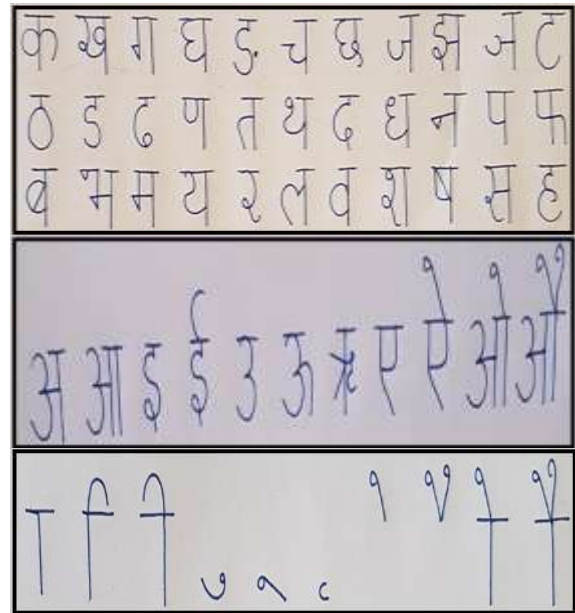 क ख ग घ ङ च छ ज झ ञ ट
ठ ड ढ ण त थ द ध न प फ
ब भ म य र ल व श ष स ह
अ आ इ ई उ ऊ ऋ ए ऐ ओ औ
ा ि ी ु ू ृ े ै ो ौ